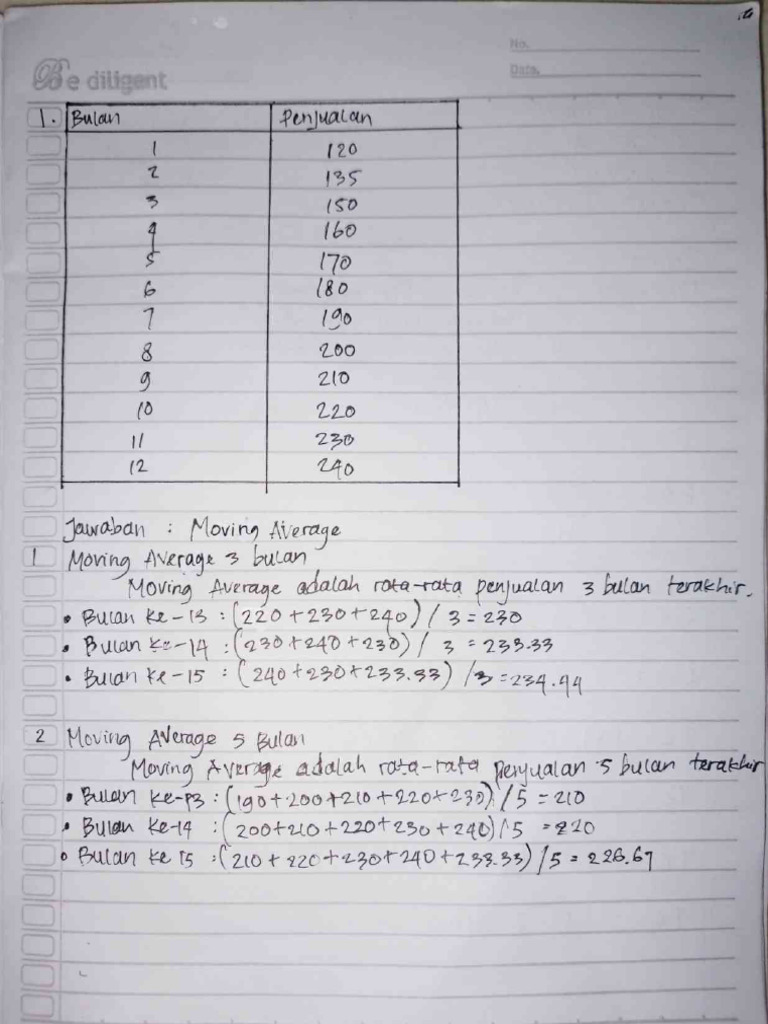 No.
Date.
Be diligent
1. Bulan Penjualan
1 120
2 135
3 150
4 160
5 170
6 180
7 190
8 200
9 210
10 220
11 230
12 240
Jawaban : Moving Average
1 Moving Average 3 bulan
Moving Average adalah rata-rata penjualan 3 bulan terakhir.
• Bulan ke-13 : (220+230+240) / 3 = 230
• Bulan ke-14 : (230+240+230) / 3 = 233.33
• Bulan ke-15 : (240+230+233.33) / 3 = 234.44
2 Moving Average 5 Bulan
Moving Average adalah rata-rata penjualan 5 bulan terakhir
• Bulan ke-13 : (190+200+210+220+230) / 5 = 210
• Bulan ke-14 : (200+210+220+230+240) / 5 = 220
• Bulan ke 15 : (210+220+230+240+233.33) / 5 = 226.67